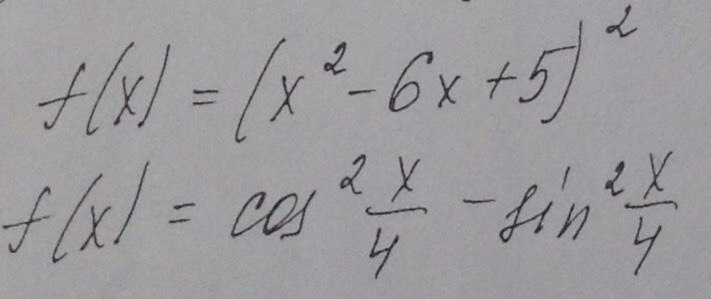 f(x) = (x² - 6x + 5)²
f(x) = cos² x/4 - sin² x/4